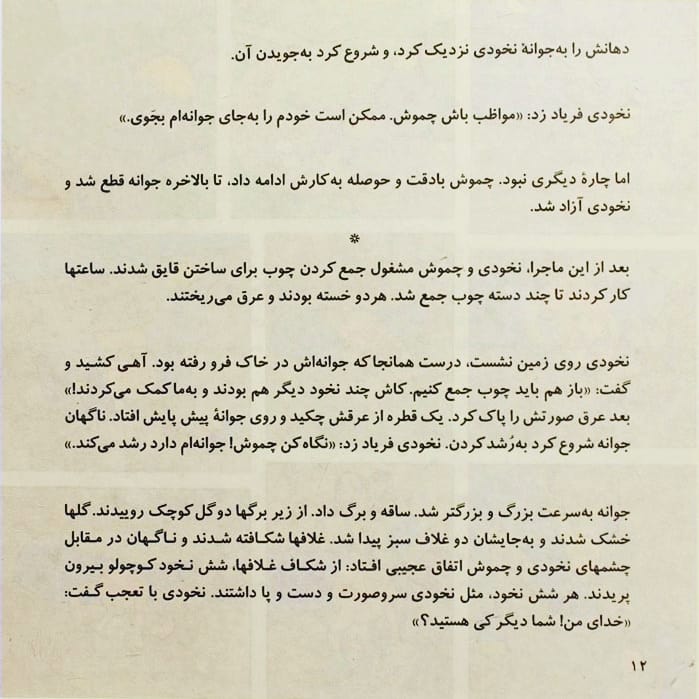 دهانش را به‌جوانهٔ نخودی نزدیک کرد، و شروع کرد به‌جویدن آن.
نخودی فریاد زد: «مواظب باش چموش. ممکن است خودم را به‌جای جوانه‌ام بجَوی.»
اما چارهٔ دیگری نبود. چموش بادقت و حوصله به‌کارش ادامه داد، تا بالاخره جوانه قطع شد و
نخودی آزاد شد.
*
بعد از این ماجرا، نخودی و چموش مشغول جمع کردن چوب برای ساختن قایق شدند. ساعتها
کار کردند تا چند دسته چوب جمع شد. هردو خسته بودند و عرق می‌ریختند.
نخودی روی زمین نشست، درست همانجا که جوانه‌اش در خاک فرو رفته بود. آهی کشید و
گفت: «باز هم باید چوب جمع کنیم. کاش چند نخود دیگر هم بودند و به‌ما کمک می‌کردند!»
بعد عرق صورتش را پاک کرد. یک قطره از عرقش چکید و روی جوانهٔ پیش پایش افتاد. ناگهان
جوانه شروع کرد به‌رُشد کردن. نخودی فریاد زد: «نگاه کن چموش! جوانه‌ام دارد رشد می‌کند.»
جوانه به‌سرعت بزرگ و بزرگتر شد. ساقه و برگ داد. از زیر برگها دو گل کوچک روییدند. گلها
خشک شدند و به‌جایشان دو غلاف سبز پیدا شد. غلافها شکافته شدند و ناگهان در مقابل
چشمهای نخودی و چموش اتفاق عجیبی افتاد: از شکاف غلافها، شش نخود کوچولو بیرون
پریدند. هر شش نخود، مثل نخودی سروصورت و دست و پا داشتند. نخودی با تعجب گفت:
«خدای من! شما دیگر کی هستید؟»
۱۲